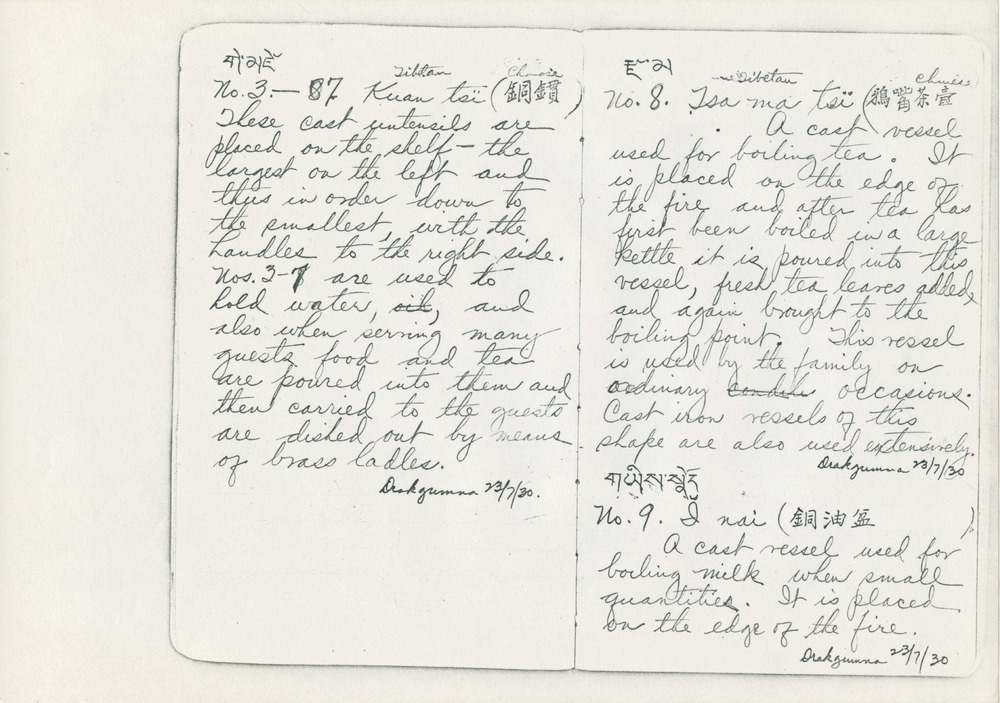 Tibetan Chinese
No. 3.— 87. Kuan tsï (銅鑵)
These cast untensils are
placed on the shelf — the
largest on the left and
thus in order down to
the smallest, with the
handles to the right side.
Nos. 3-7 are used to
hold water, oil, and
also when serving many
guests food and tea
are poured into them and
then carried to the guests
are dished out by means
of brass ladles.
Drakgumna 23/7/30.
Tibetan Chinese
No. 8. Tsa ma tsï (鴉嘴茶壺
A cast vessel
used for boiling tea. It
is placed on the edge of
the fire and after tea has
first been boiled in a large
kettle it is poured into this
vessel, fresh tea leaves added,
and again brought to the
boiling point. This vessel
is used by the family on
ordinary occasions.
Cast iron vessels of this
shape are also used extensively.
Drakgumna 23/7/30
No. 9. I nai (銅油盆)
A cast vessel used for
boiling milk when small
quantities. It is placed
on the edge of the fire.
Drakgumna 23/7/30